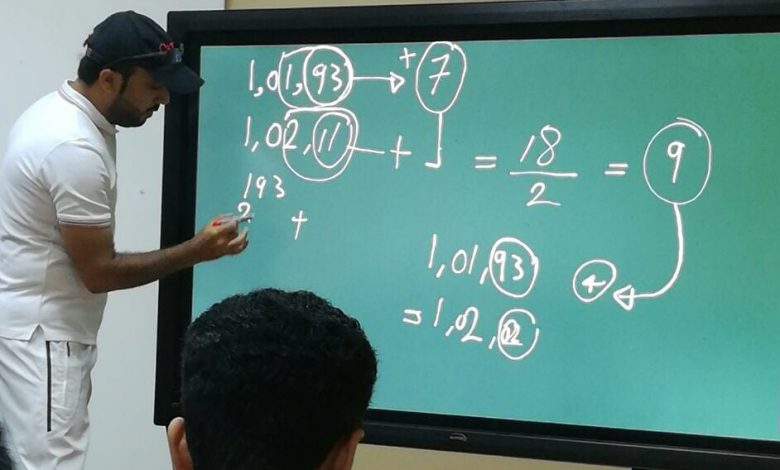 1,01,93 → + 7
1,02,11 + = 18/2 = 9
193
2
+
1,01,93 +
= 1,02,02